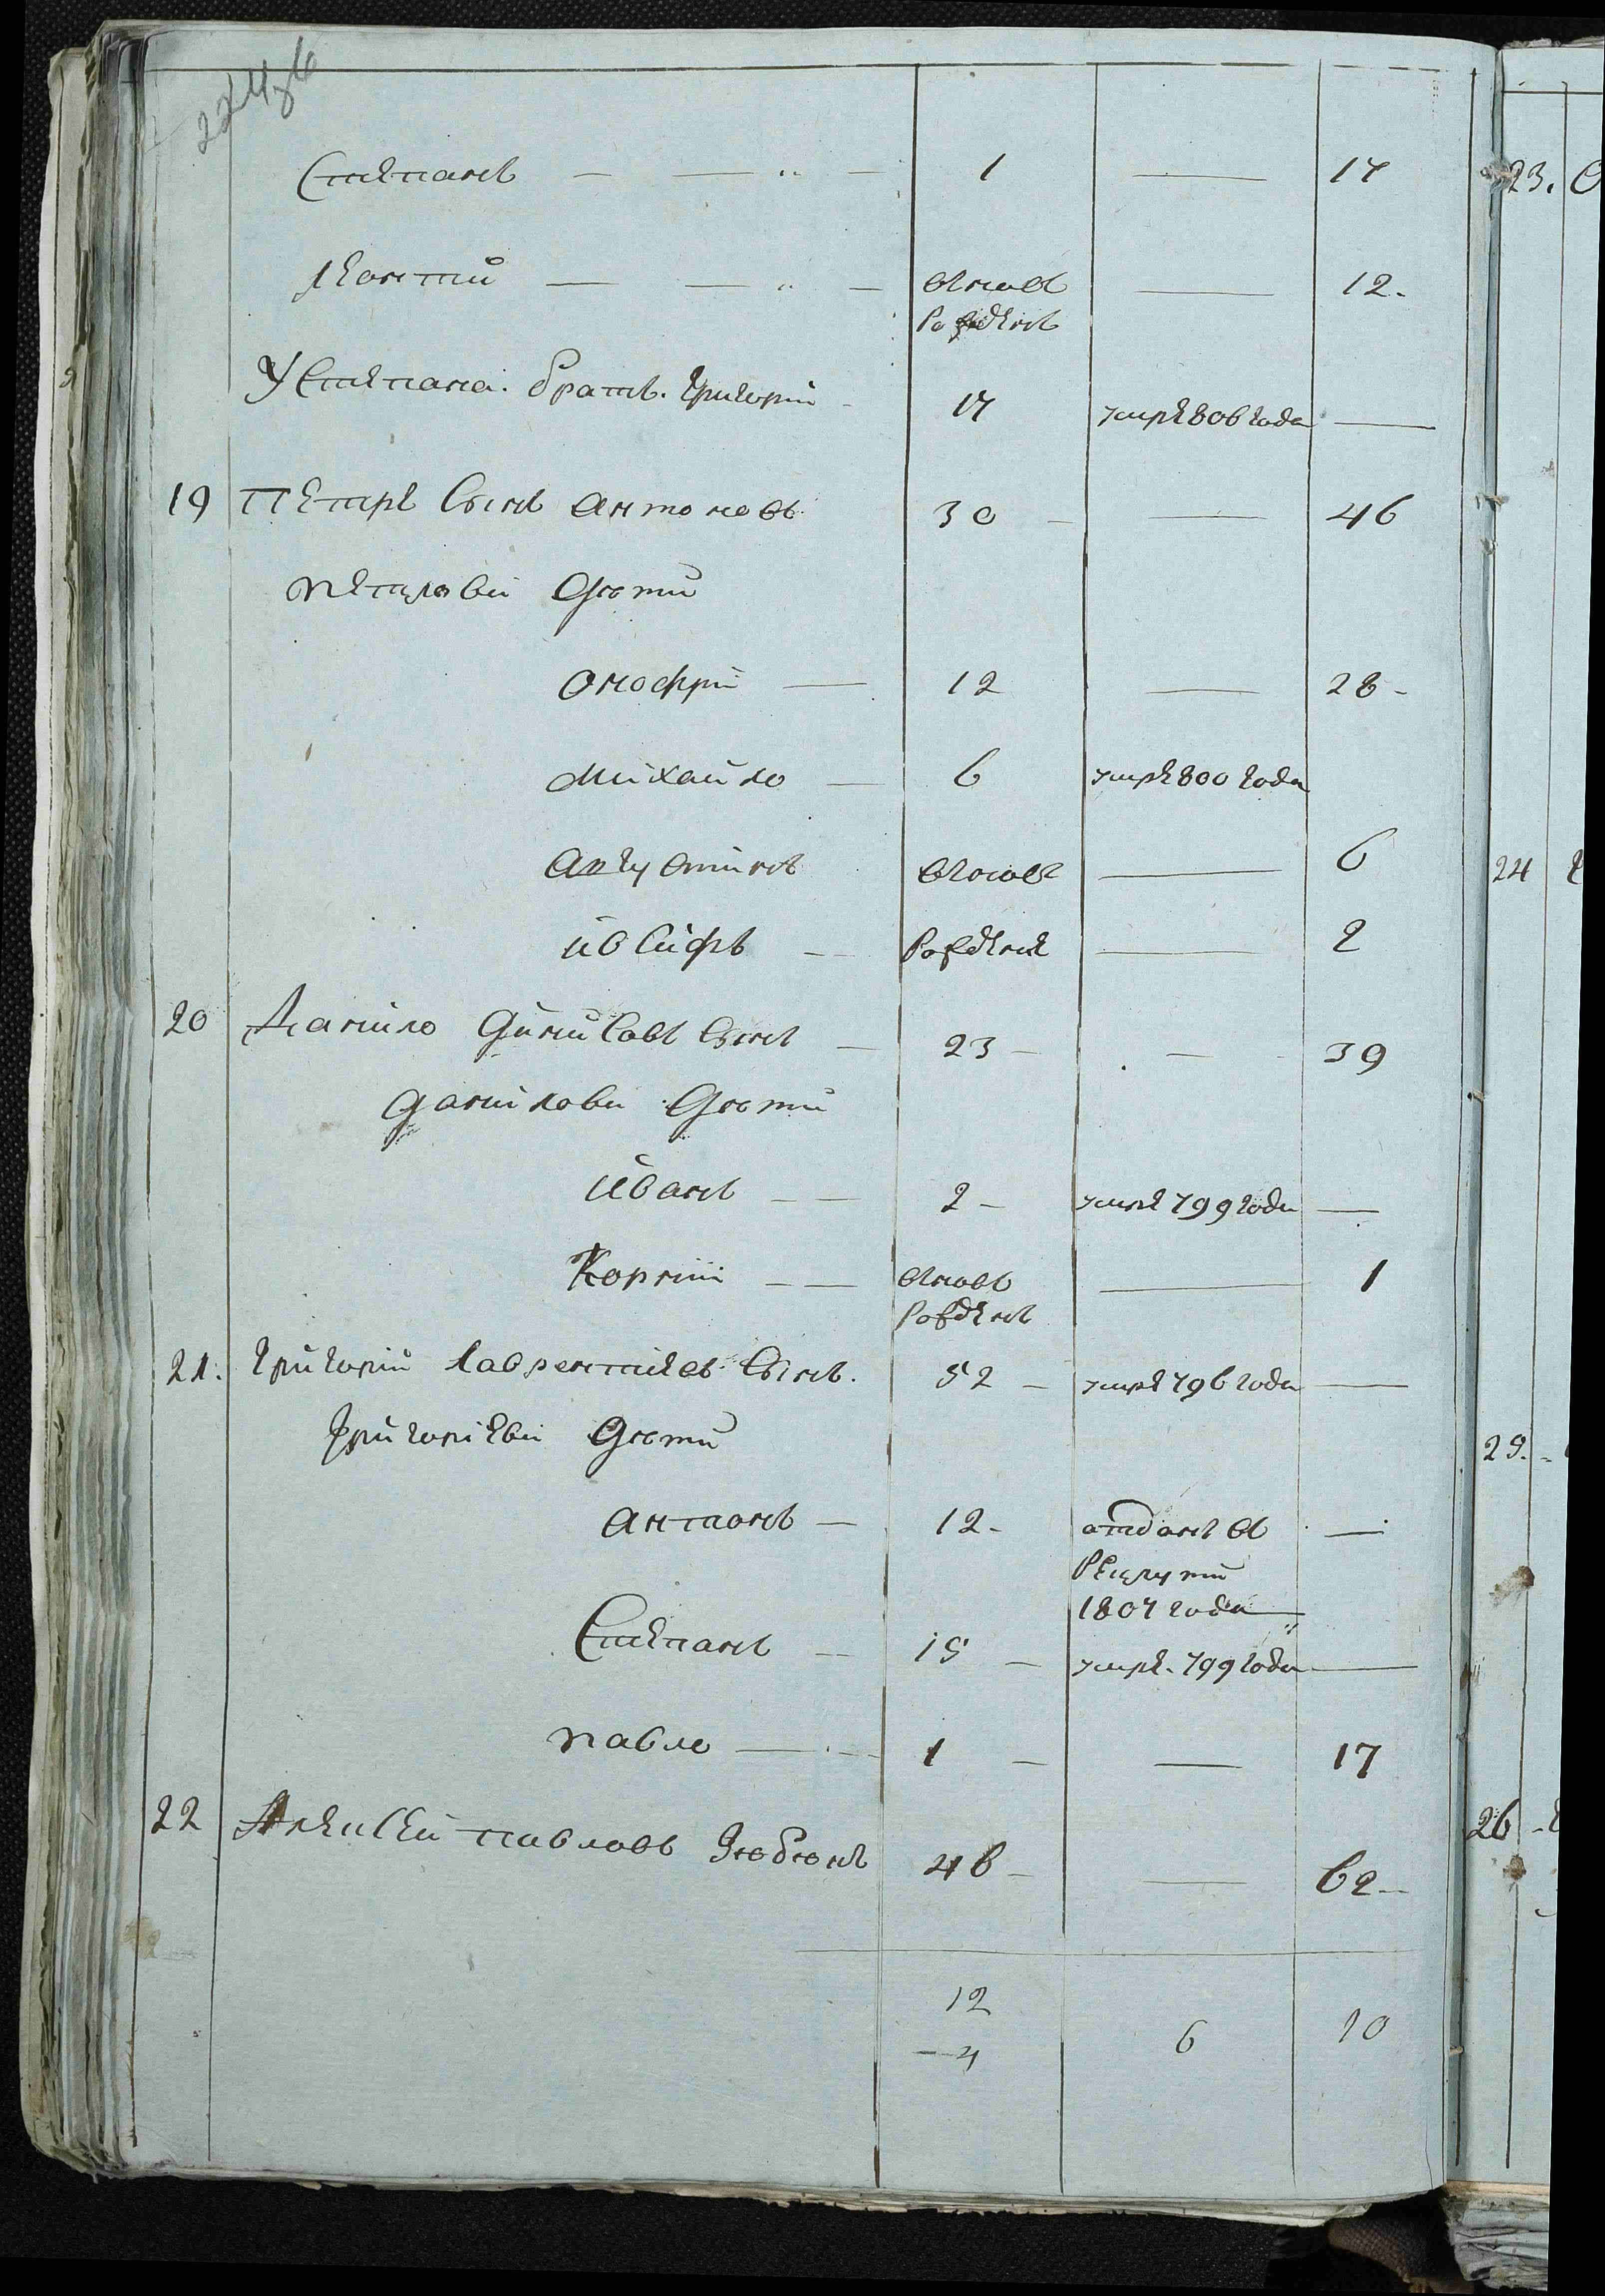 Степанъ — — „ — 1 — 17
Леонтий — — „ — вновь — 12.
рожденъ
У Степана братъ Григорий 17 умре 806 года —
19 Петръ сынъ Антоновъ 30 — 46
Петрови дети
Онофрий — 12 — 28
Михайло — 6 умре 800 года
Августинъ вновь — 6
Иосифъ — рожденъ — 2
20 Данило Денисовъ сынъ — 23 — 39
Данилови дети
Иванъ — 2 — умре 799 года —
Корний — вновь — 1
рожденъ
21. Григорий Лаврентиевъ сынъ. 52 — умре 796 года —
Григориеви дети
Антонъ — 12 - отданъ въ —
рекруты
1807 года
Степанъ — 15 — умре 799 года —
Павло — 1 — 17
22 Алексей Павловъ 46 — 62
12 6 10
4
23.
24
25.
26